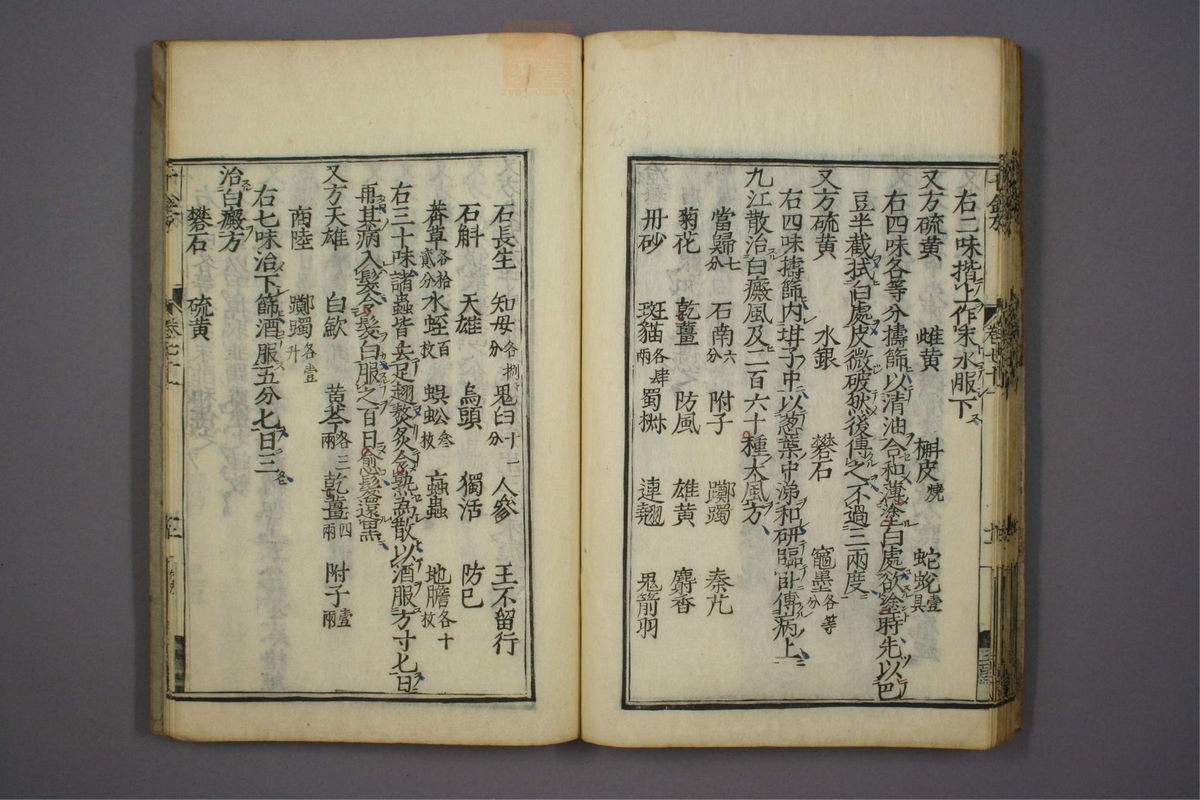 右二味揩上作末水服下
又方硫黄 雌黄 槲皮燒 蛇蛻壹具
右四味各等分擣篩以清油合和薄塗白處欲塗時先以巴
豆半截拭白處皮微破然後傅之不過三兩度
又方硫黄 水銀 礬石 竈墨各等分
右四味擣篩内坩子中以葱葉中涕和研臨卧傅病上
九江散治白癜風及二百六十種大風方
當歸七分 石南六分 附子 躑躅 秦艽
菊花 乾薑 防風 雄黄 麝香
丹砂 斑猫各肆兩 蜀椒 連翹 鬼箭羽
石長生 知母各捌分 鬼臼十一分 人參 王不留行
石斛 天雄 烏頭 獨活 防已
莽草各拾貳分 水蛭百枚 蜈蚣叁枚 蝱蟲 地膽各十枚
右三十味諸蟲皆去足翅熬炙令熟爲散以酒服方寸匕日
再其病入髮令髮白服之百日愈髮還黑
又方天雄 白歛 黄芩各三兩 乾薑四兩 附子壹兩
商陸 躑躅各壹升
右七味治下篩酒服五分匕日三
治白癜方
礬石 硫黄